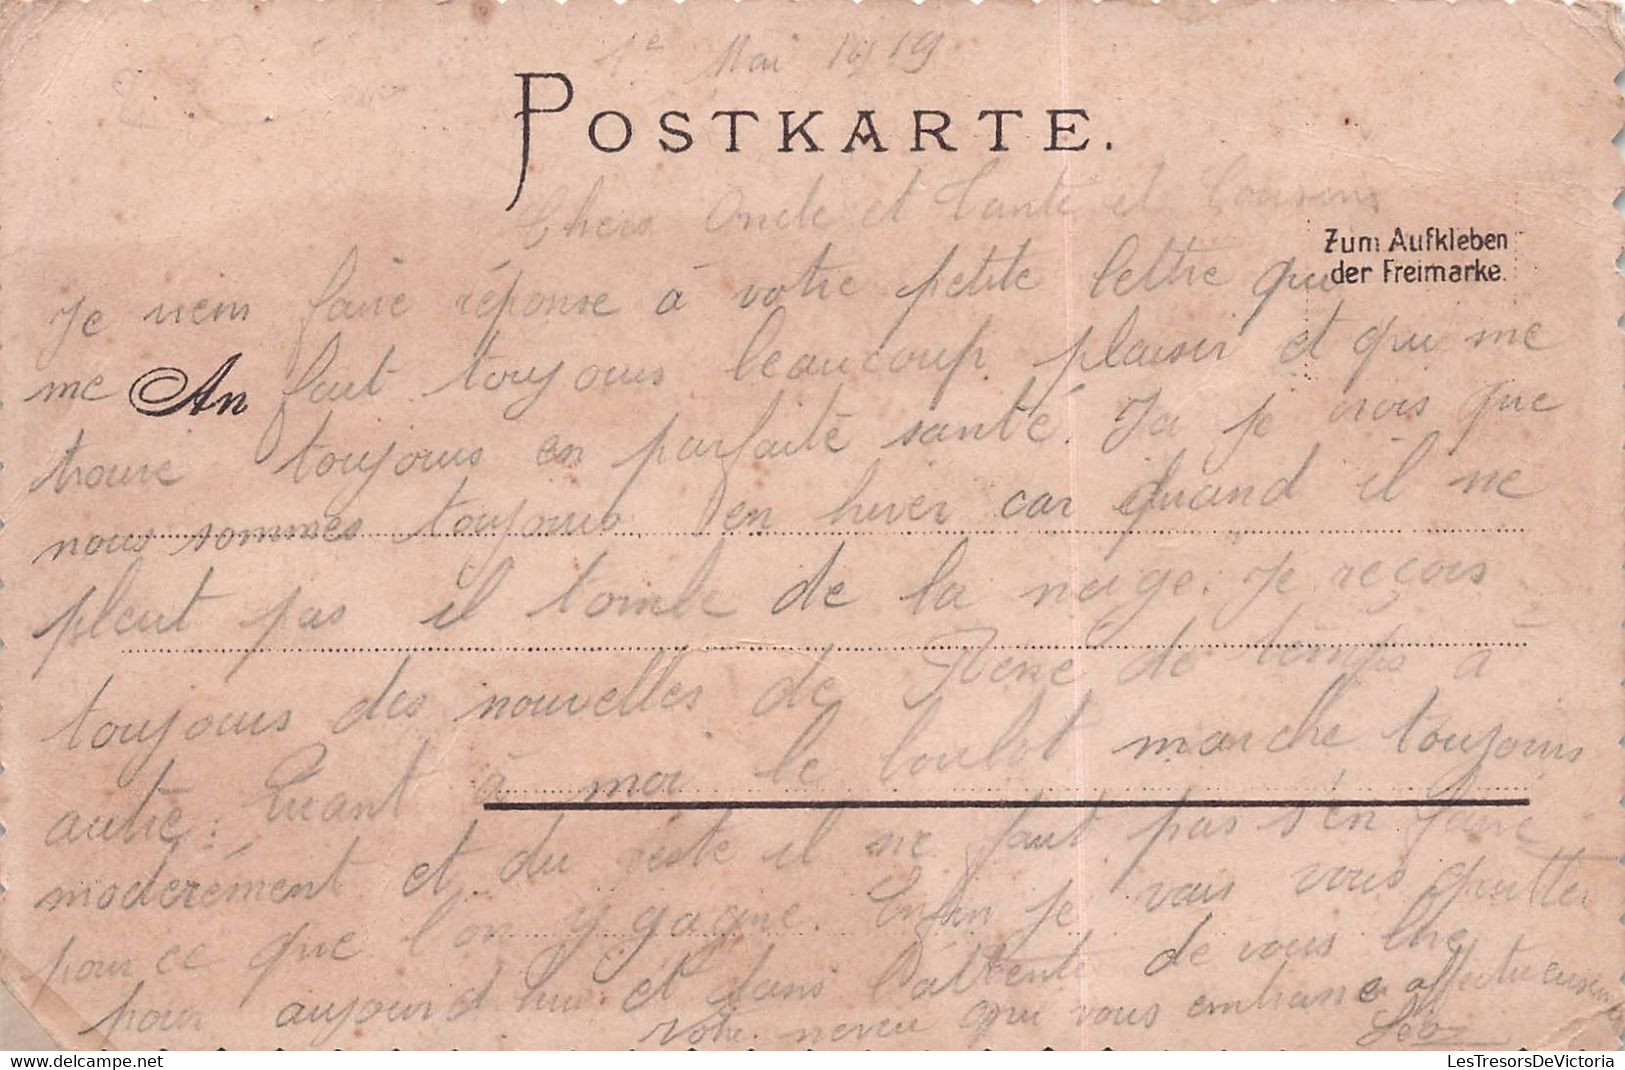 1e Mai 1919
POSTKARTE.
Chers Oncle et Tante et Cousins
Zum Aufkleben
der Freimarke.
Je viens faire réponse à votre petite lettre qui
me fait toujours beaucoup plaisir et qui me
An
trouve toujours en parfaite santé. Ici je crois que
nous sommes toujours en hiver car quand il ne
pleut pas il tombe de la neige. Je reçois
toujours des nouvelles de René de temps à
autre. Quant à moi le boulot marche toujours
moderément et du reste il ne faut pas s'en faire
pour ce que l'on y gagne. Enfin je vais vous quitter
pour aujourd'hui et dans l'attente de vous lire
Votre neveu qui vous embrasse affectueusement
LesTresorsDeVictoria.com